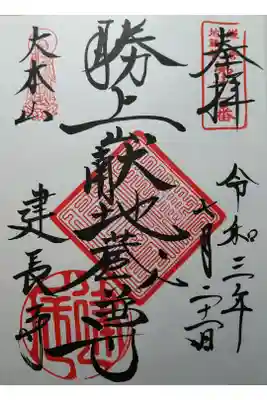 奉拝
令和三年
十月二十一日
勝上嶽地蔵尊
大本山
建長寺